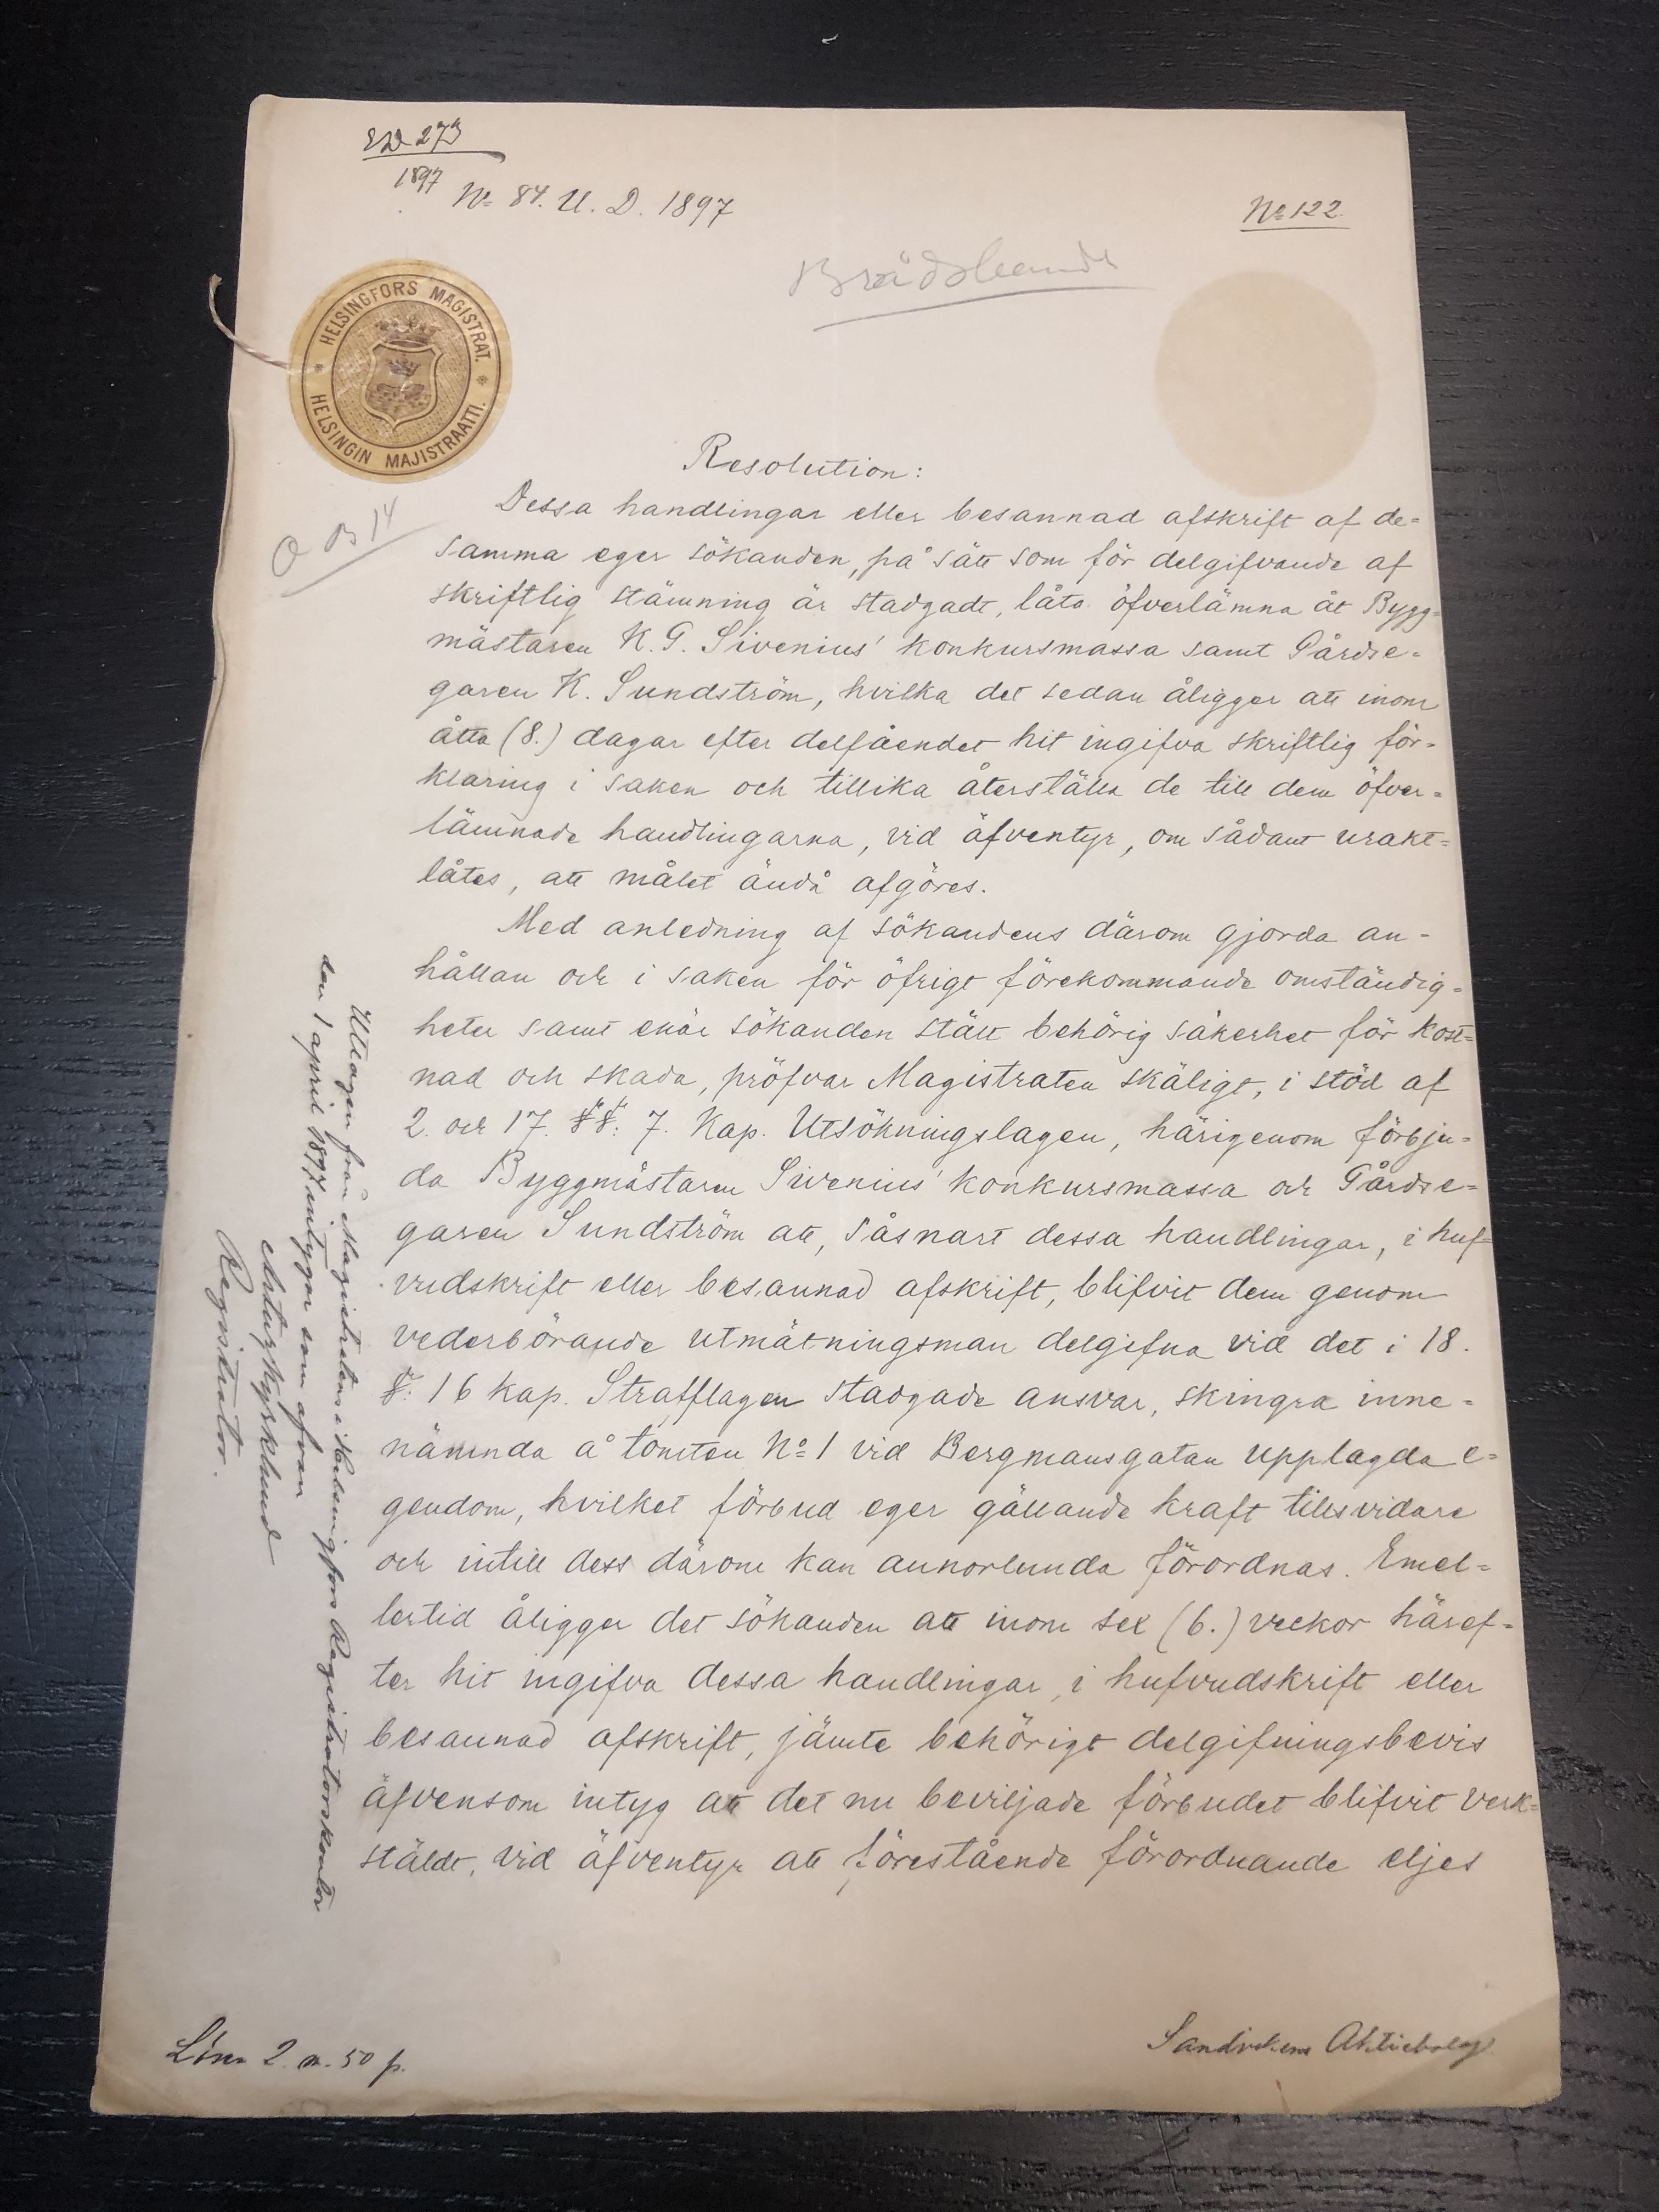 273
1897
No 84. U. D. 1897
No 122.
Brådskande
HELSINGFORS MAGISTRAT.
HELSINGIN MAJISTRAATTI.
Resolution:
Dessa handlingar eller besannad afskrift af de=
samma eger sökanden, på sätt som för delgifvande af
skriftlig stämning är stadgadt, låta öfverlämna åt Bygg=
mästaren K. G. Sivenius' konkursmassa samt Gårdse=
garen K. Sundström, hvilka det sedan åligger att inom
åtta (8.) dagar efter delfåendet hit ingifva skriftlig för=
klaring i saken och tillika återställa de till dem öfver=
lämnade handlingarna, vid äfventyr, om sådant urakt=
låtes, att målet ändå afgöres.
Med anledning af sökandens därom gjorda an=
hållan och i saken för öfrigt förekommande omständig=
heter samt enär sökanden stält behörig säkerhet för kost=
nad och skada, pröfvar Magistraten skäligt, i stöd af
2. och 17. §§: 7. Kap. Utsökningslagen, härigenom förbju=
da Byggmästaren Sivenius' konkursmassa och Gårdse=
garen Sundström att, såsnart dessa handlingar, i huf=
vudskrift eller besannad afskrift, blifvit dem genom
vederbörande utmätningsman delgifna vid det i 18.
§: 16 kap. Strafflagen stadgade ansvar, skingra inne=
nämnda å tomten No 1 vid Bergmansgatan upplagda e=
gendom, hvilket förbud eger gällande kraft tillsvidare
och intill dess därom kan annorlunda förordnas. Emel=
lertid åligger det sökanden att inom sex (6.) veckor häref=
ter hit ingifva dessa handlingar, i hufvudskrift eller
besannad afskrift, jämte behörigt delgifningsbevis
äfvensom intyg att det nu beviljade förbudet blifvit verk=
stäldt, vid äfventyr att förestående förordnande eljes
Uttagen från Magistratens i Helsingfors Registratorskontor
den 1 april 1897 intygar som ofvan
Registrator.
Lösen 2. m. 50 p.
Sandvikens Aktiebolag